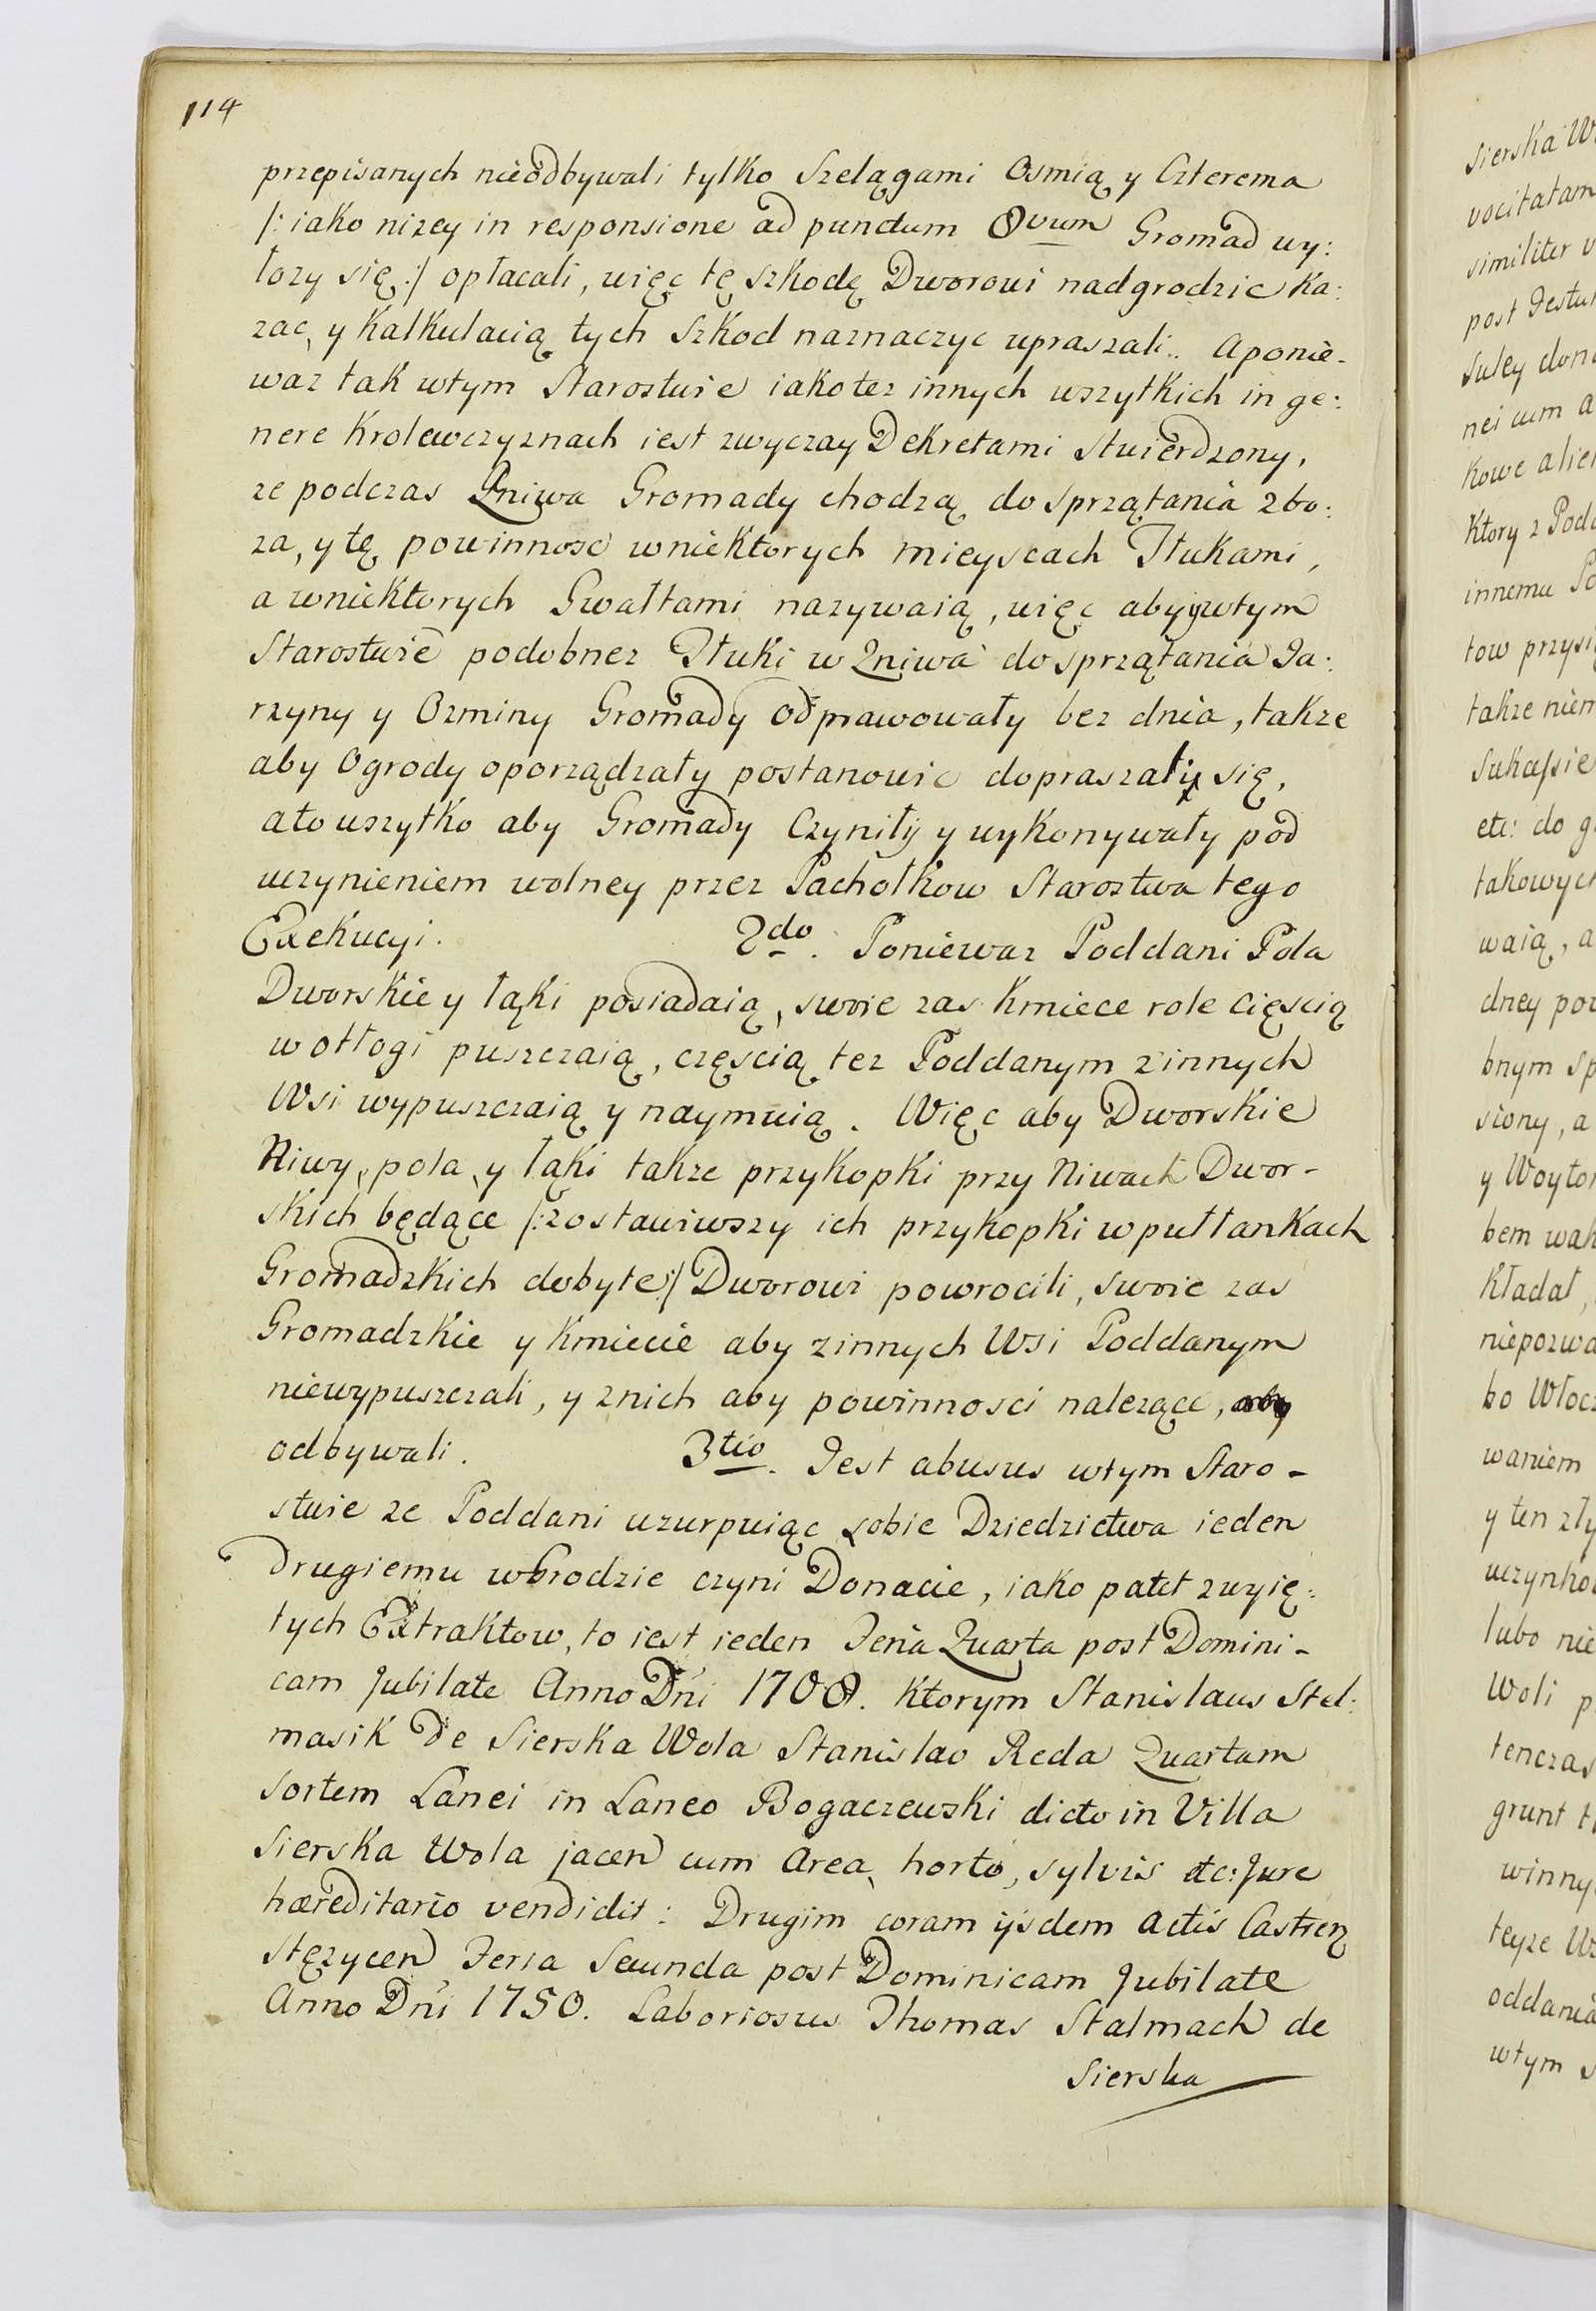 114
przepisanych nieodbywali tylko Szelągami Osmią y Czterema
/: iako nizey in responsione ad punctum 8vum Gromad wy:
łozy się :/ opłacali, więc tę szkodę Dworowi nadgrodzic ka:
zac, y Kalkulacią tych Szkod naznaczyc upraszali.. Aponie-
waz tak wtym Starostwie iakotez innych wszytkich in ge:
nere Krolewczyznach iest zwyczay Dekretami stwierdzony,
ze podczas Zniwa Gromady chodzą do sprzątania zbo:
za, y tę powinnosc wniektorych mieyscach Tłukami,
a wniektorych Gwałtami nazywaią, więc aby ywtym
Starostwie podobnez Tłuki w Zniwa do sprzątania Ja:
rzyny y Ozminy Gromady odprawowały bez dnia, takze
aby Ogrody oporządzały postanowic dopraszały się,
ato wszytko aby Gromady Czyniły y wykonywały pod
uczynieniem wolney przez Pachołkow Starostwa tego
Exekucyi. 2do. Poniewaz Poddani Pola
Dworskie y łąki posiadaią, swoie zas Kmiece role Cięscią
w otłogi puszczaią, częscią tez Poddanym zinnych
Wsi wypuszczaią y naymuią. Więc aby Dworskie
Niwy, pola, y łąki takze przykopki przy Niwach Dwor-
skich będące /: zostawiwszy ich przykopki wpułłankach
Gromadzkich dobyte :/ Dworowi powrocili, swoie zas
Gromadzkie y Kmiecie aby zinnych Wsi Poddanym
niewypuszczali, y znich aby powinnosci nalezące,
odbywali. 3tio. Jest abusus wtym Staro-
stwie ze Poddani uzurpuiąc sobie Dziedzictwa ieden
drugiemu wGrodzie czyni Donacie, iako patet zwyię:
tych Extraktow, to iest ieden Feria Quarta post Domini-
cam Jubilate Anno Dni 1708. Ktorym Stanislaus Stel:
masik de Sierska Wola Stanislao Reda Quartam
sortem Lanei in Laneo Bogaczewski dicto in Villa
Sierska Wola jacen cum Area, horto, sylvis etc: Jure
hæreditario vendidit: Drugim coram ijsdem Actis Castren
Stęzycen Feria Secunda post Dominicam Jubilate
Anno Dni 1750. Laboriosus Thomas Stalmach de
Sierska
Sierska
vocitatam
similiter
post
Suley
nei cum
Kowe
Ktory z
innemu
tow
takze
etc: do
waią, a
dney
bnym
siony, a
y
bem
Kładał
bo
waniem
y ten
lubo nie
Woli
tenczas
grunt
winny
teyze
oddania
wtym